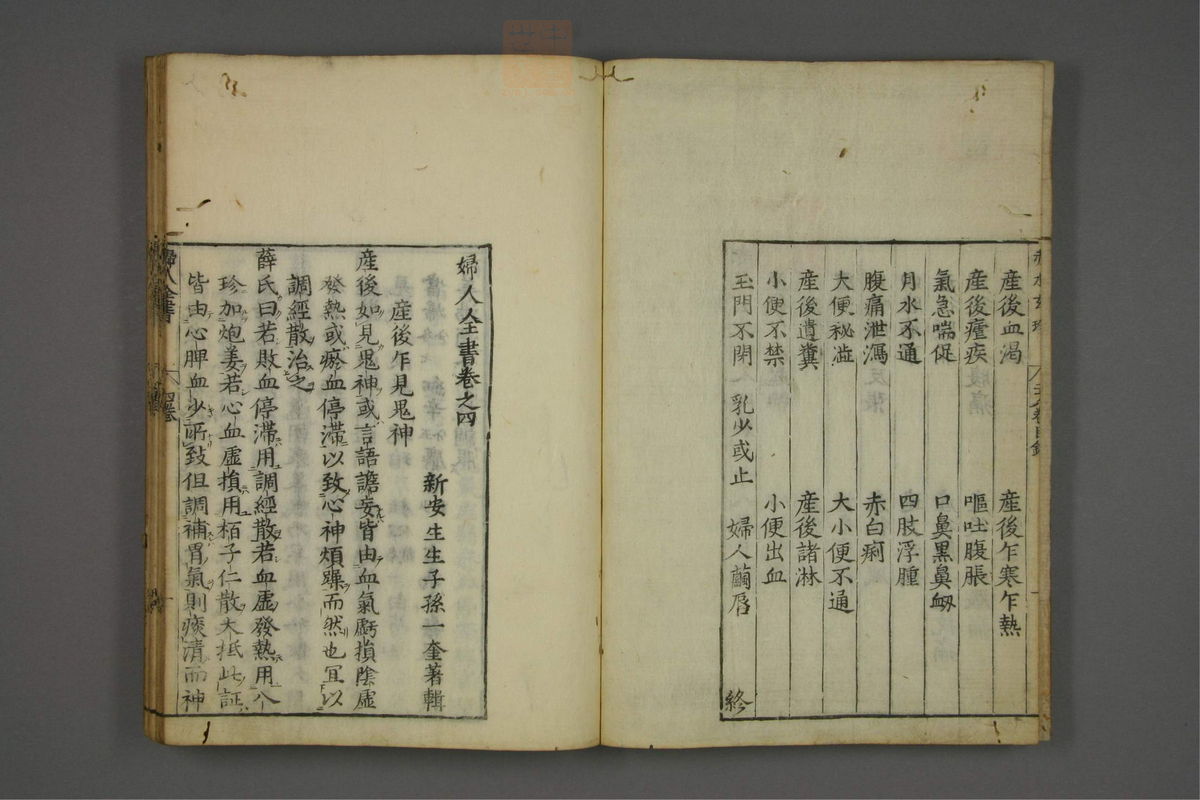 産後血渇 産後乍寒乍熱
産後瘧疾 嘔吐腹脹
氣急喘促 口鼻黒鼻衂
月水不通 四肢浮腫
腹痛泄瀉 赤白痢
大便秘澁 大小便不通
産後遺糞 産後諸淋
小便不禁 小便出血
玉門不閉 乳少或止 婦人繭唇 終
婦人全書卷之四
新安生生子孫一奎著輯
産後乍見鬼神
産後如見鬼神或言語譫妄皆由血氣虧損陰虛
發熱或瘀血停滯以致心神煩躁而然也宜以
調經散治之
薛氏曰若敗血停滯用調經散若血虛發熱用八
珍加炮姜若心血虛損用栢子仁散大抵此証
皆由心脾血少所致但調補胃氣則痰清而神
婦人全書 四卷